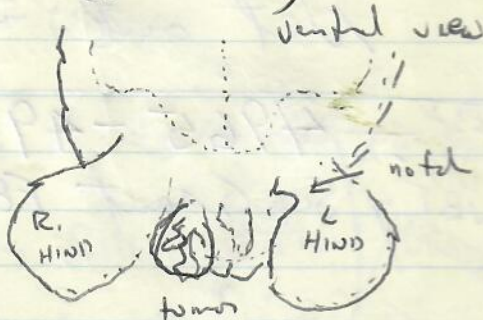 ventral view
notch
R. HIND
L HIND
tumor